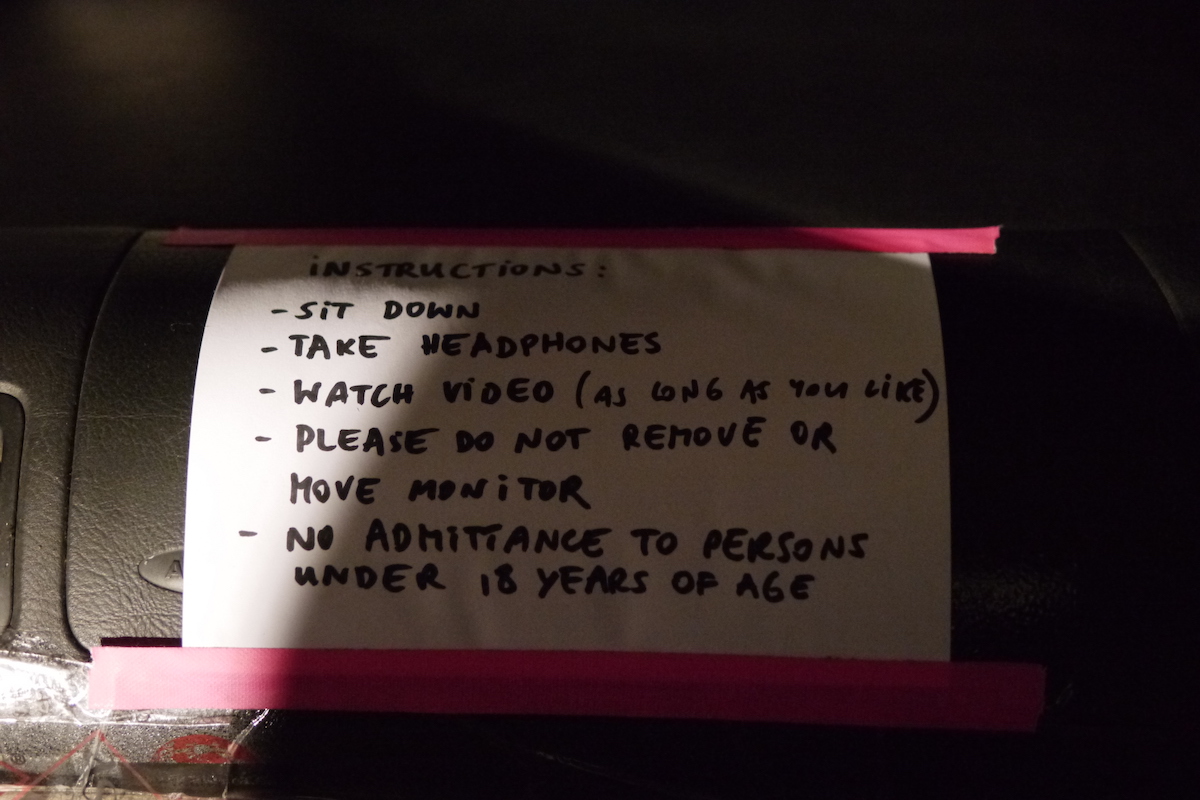 iNSTRUCTiONS:
- SiT DOWN
- TAKE HEADPHONES
- WATCH ViDEO (AS LONG AS YOU LiKE)
- PLEASE DO NOT REMOVE OR
MOVE MONiTOR
- NO ADMITTANCE TO PERSONS
UNDER 18 YEARS OF AGE